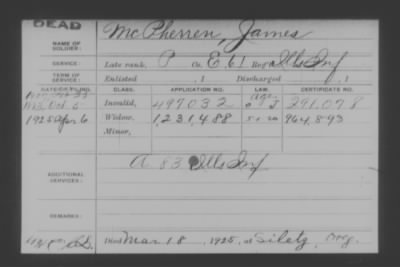 DEAD
NAME OF SOLDIER: McPherren, James
SERVICE: Late rank, P Co. E, 61 Reg. Ills Inf
TERM OF SERVICE: Enlisted , 1 Discharged , 1
DATE OF FILING. CLASS. APPLICATION NO. LAW. CERTIFICATE NO.
Invalid, 497032 291.078
1925 Apr 6 Widow, 1,231,488 964,893
Minor,
ADDITIONAL SERVICES: A 83 Ills Inf
REMARKS:
Died Mar 18, 1925, at Siletz, Oreg.